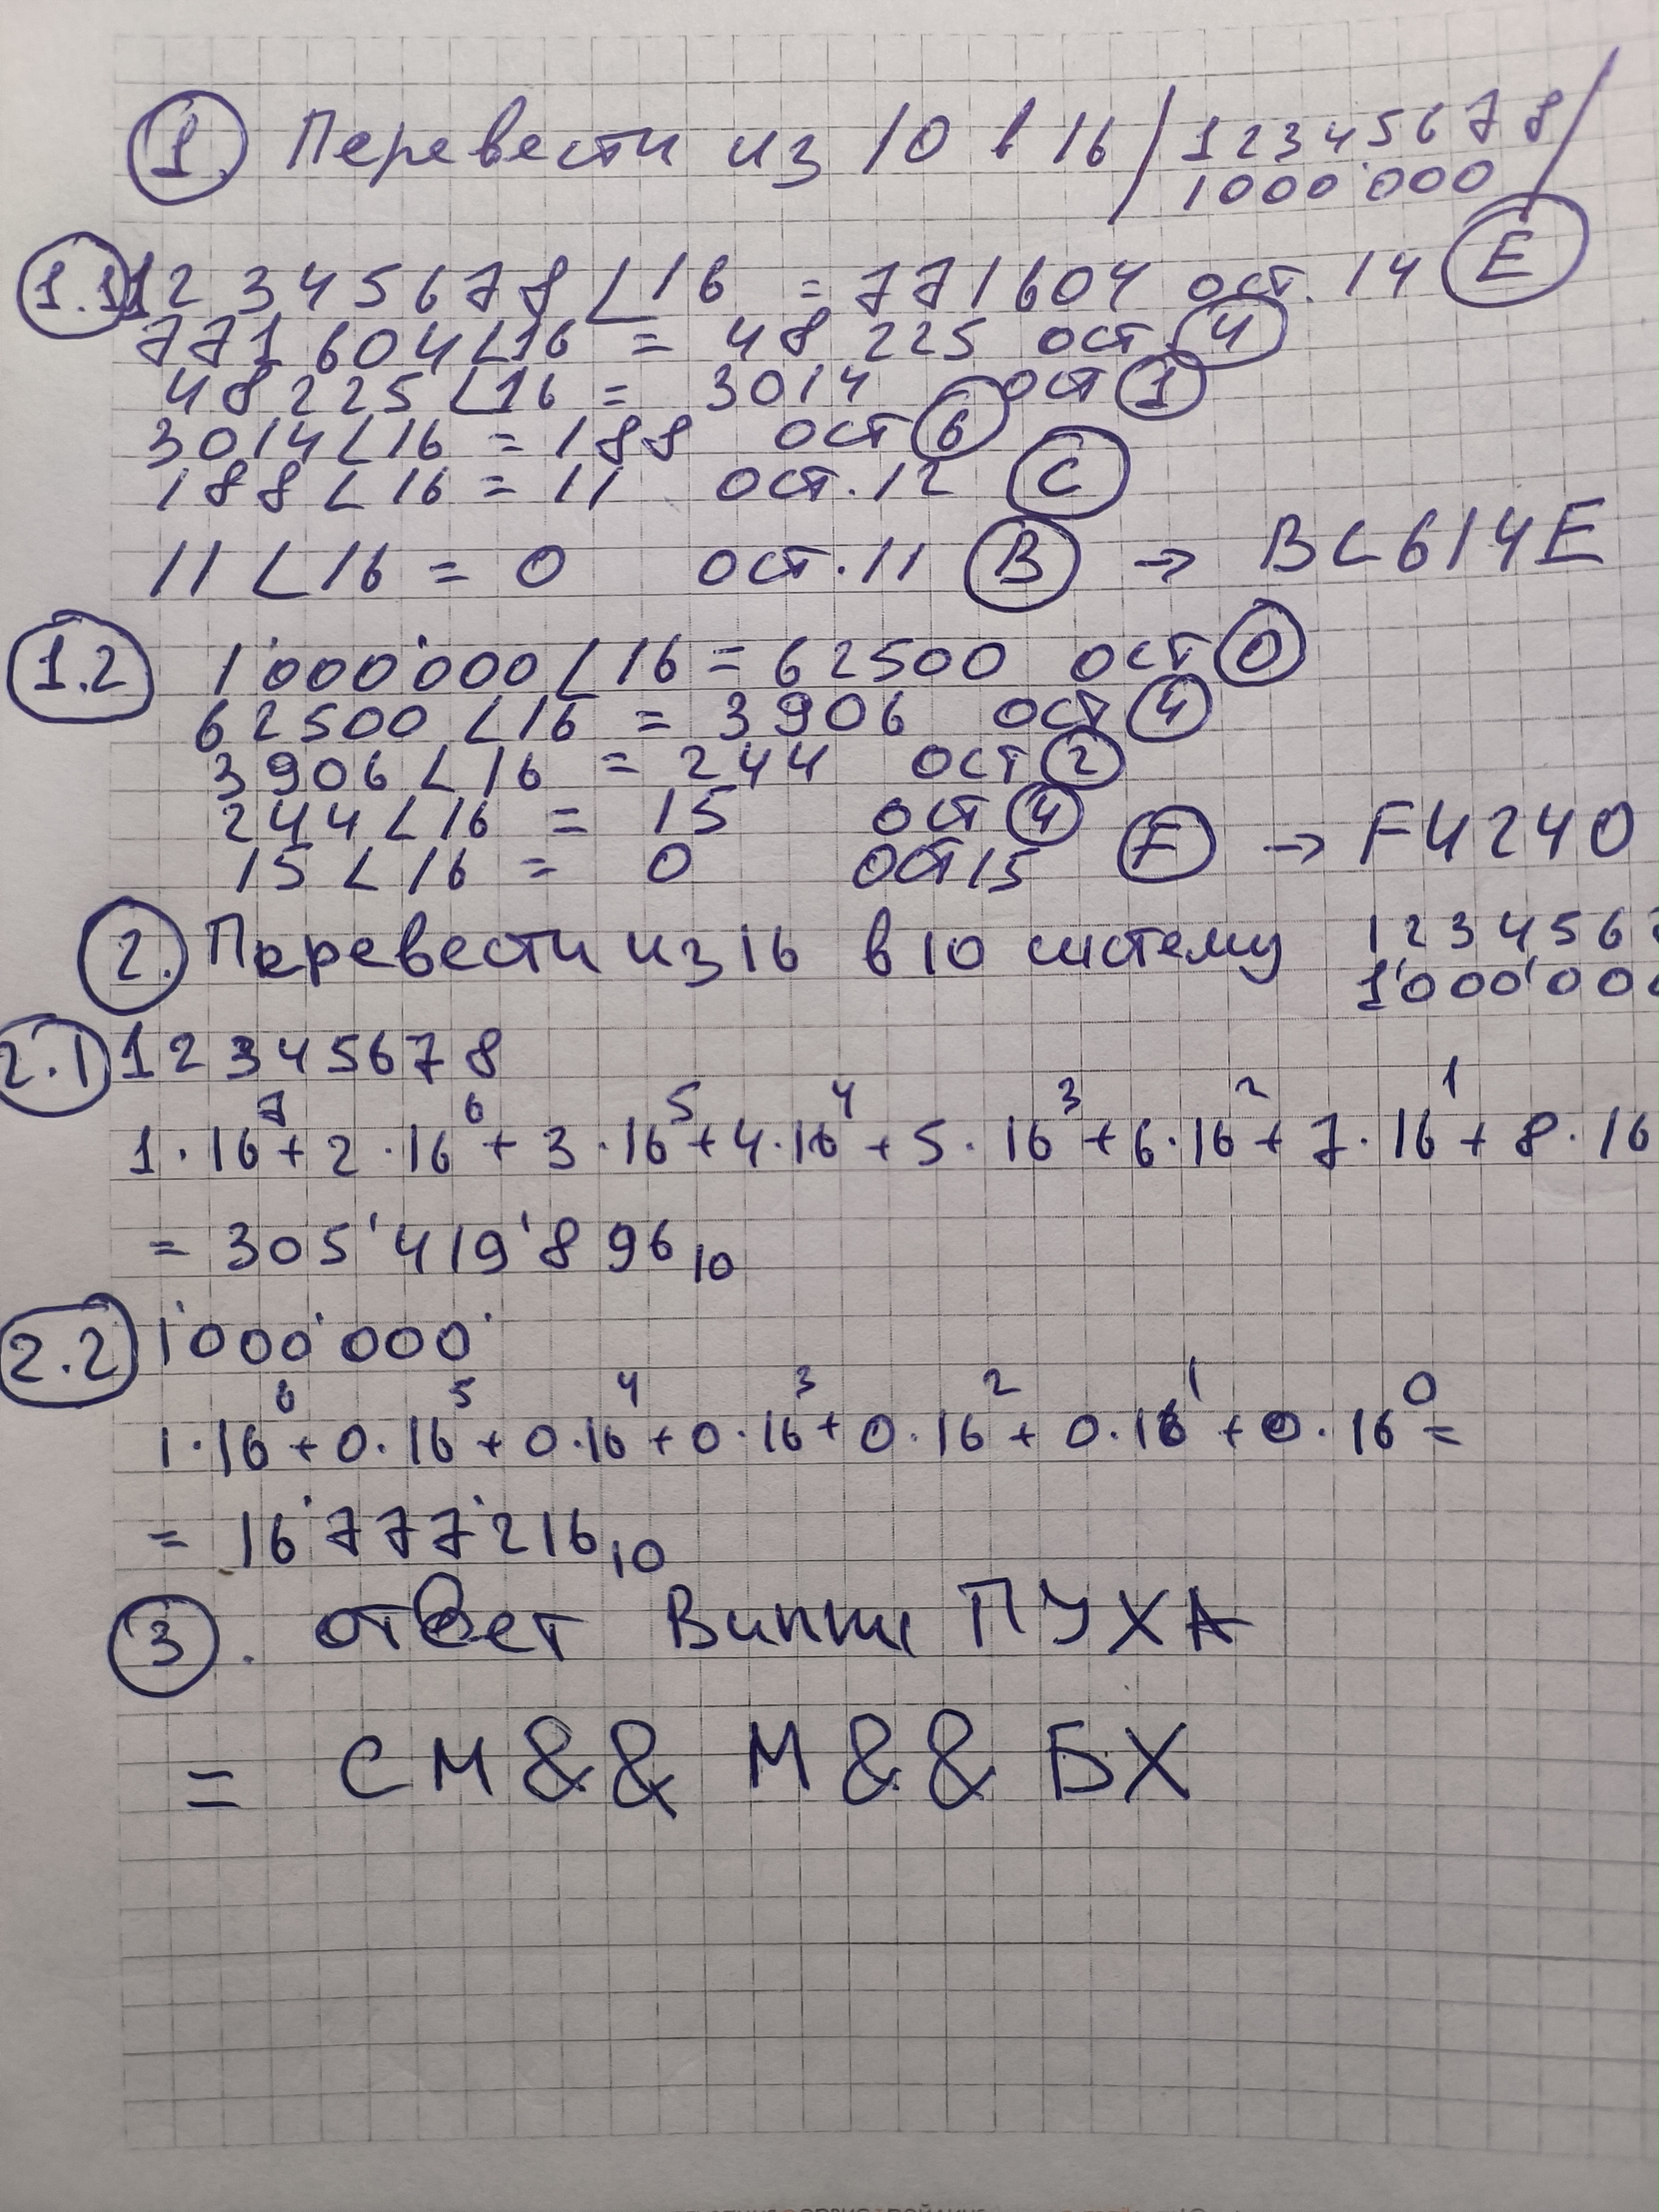 1. Перевести из 10 в 16 / 12345678 /
1000'000
1.1 12345678 ∠16 = 771604 ост. 14 E
771604∠16 = 48225 ост. 4
48225∠16 = 3014 ост 1
3014∠16 = 188 ост 6
188∠16 = 11 ост. 12 C
11∠16 = 0 ост. 11 B → BC614E
1.2 1'000'000∠16 = 62500 ост 0
62500∠16 = 3906 ост 4
3906∠16 = 244 ост 2
244∠16 = 15 ост 4
15∠16 = 0 ост 15 F → F4240
2. Перевести из 16 в 10 систему 123456
1'000'00
2.1 12345678
1·16⁷+2·16⁶+3·16⁵+4·16⁴+5·16³+6·16²+7·16¹+8·16
= 305'419'896₁₀
2.2 1'000'000
1·16⁶+0·16⁵+0·16⁴+0·16³+0·16²+0·16¹+0·16⁰=
= 16'777'216₁₀
3. ответ Винни ПУХА
= СМ&& М&& БХ